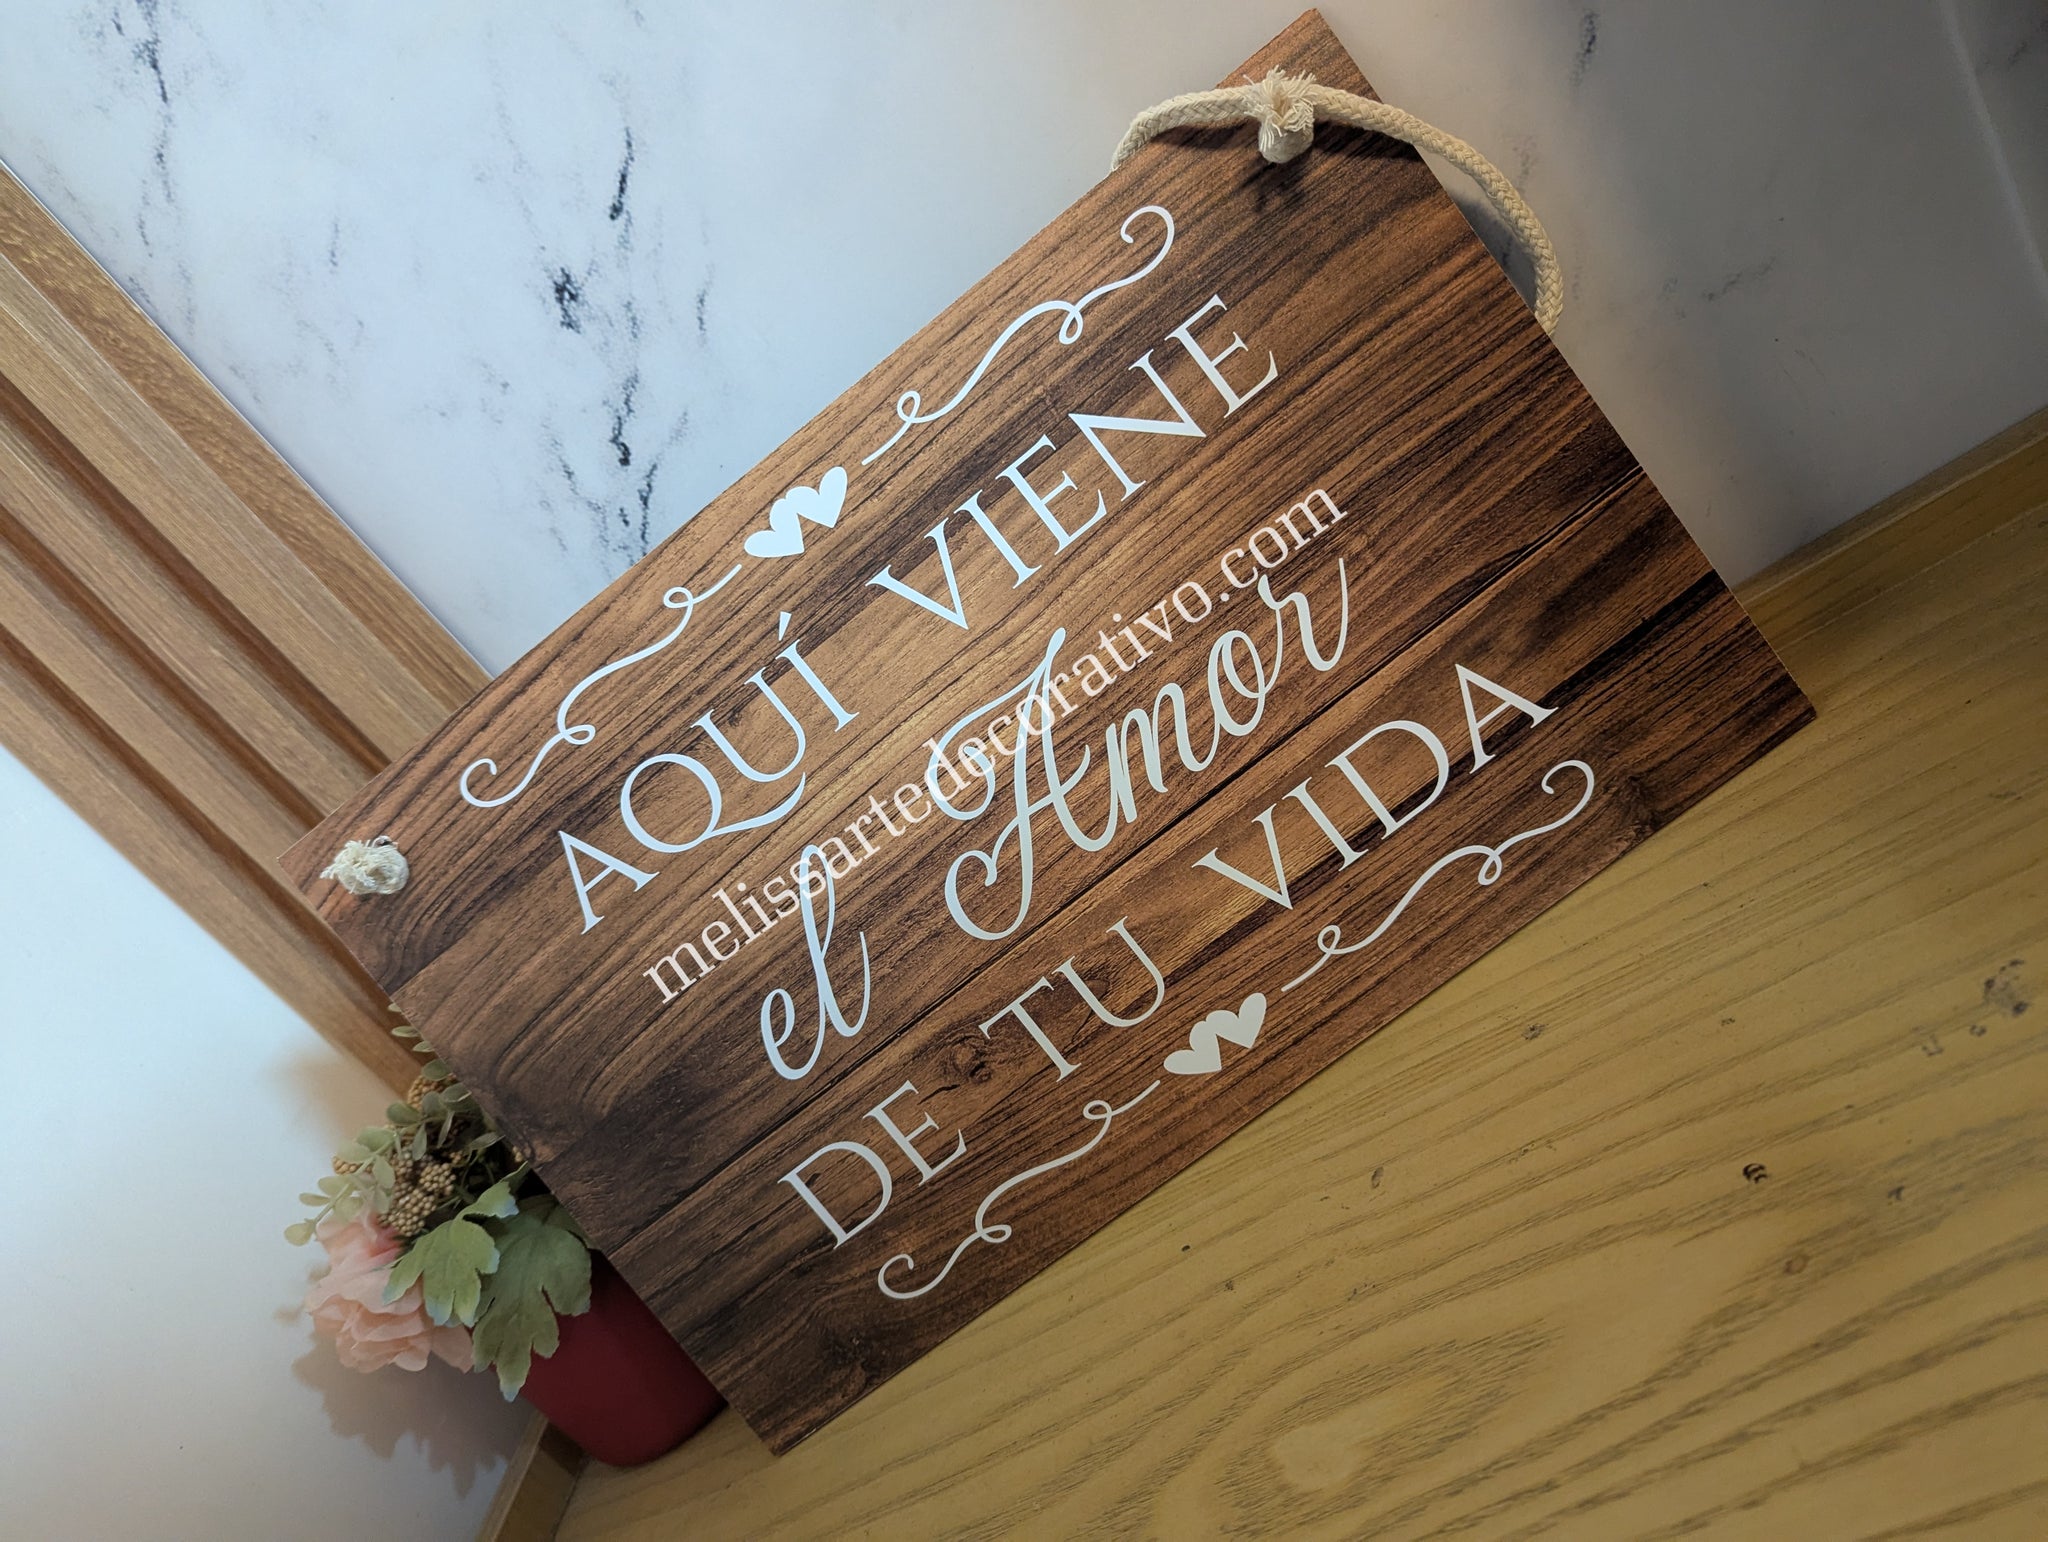 AQUÍ VIENE
melissartedecorativo.com
el Amor
DE TU VIDA